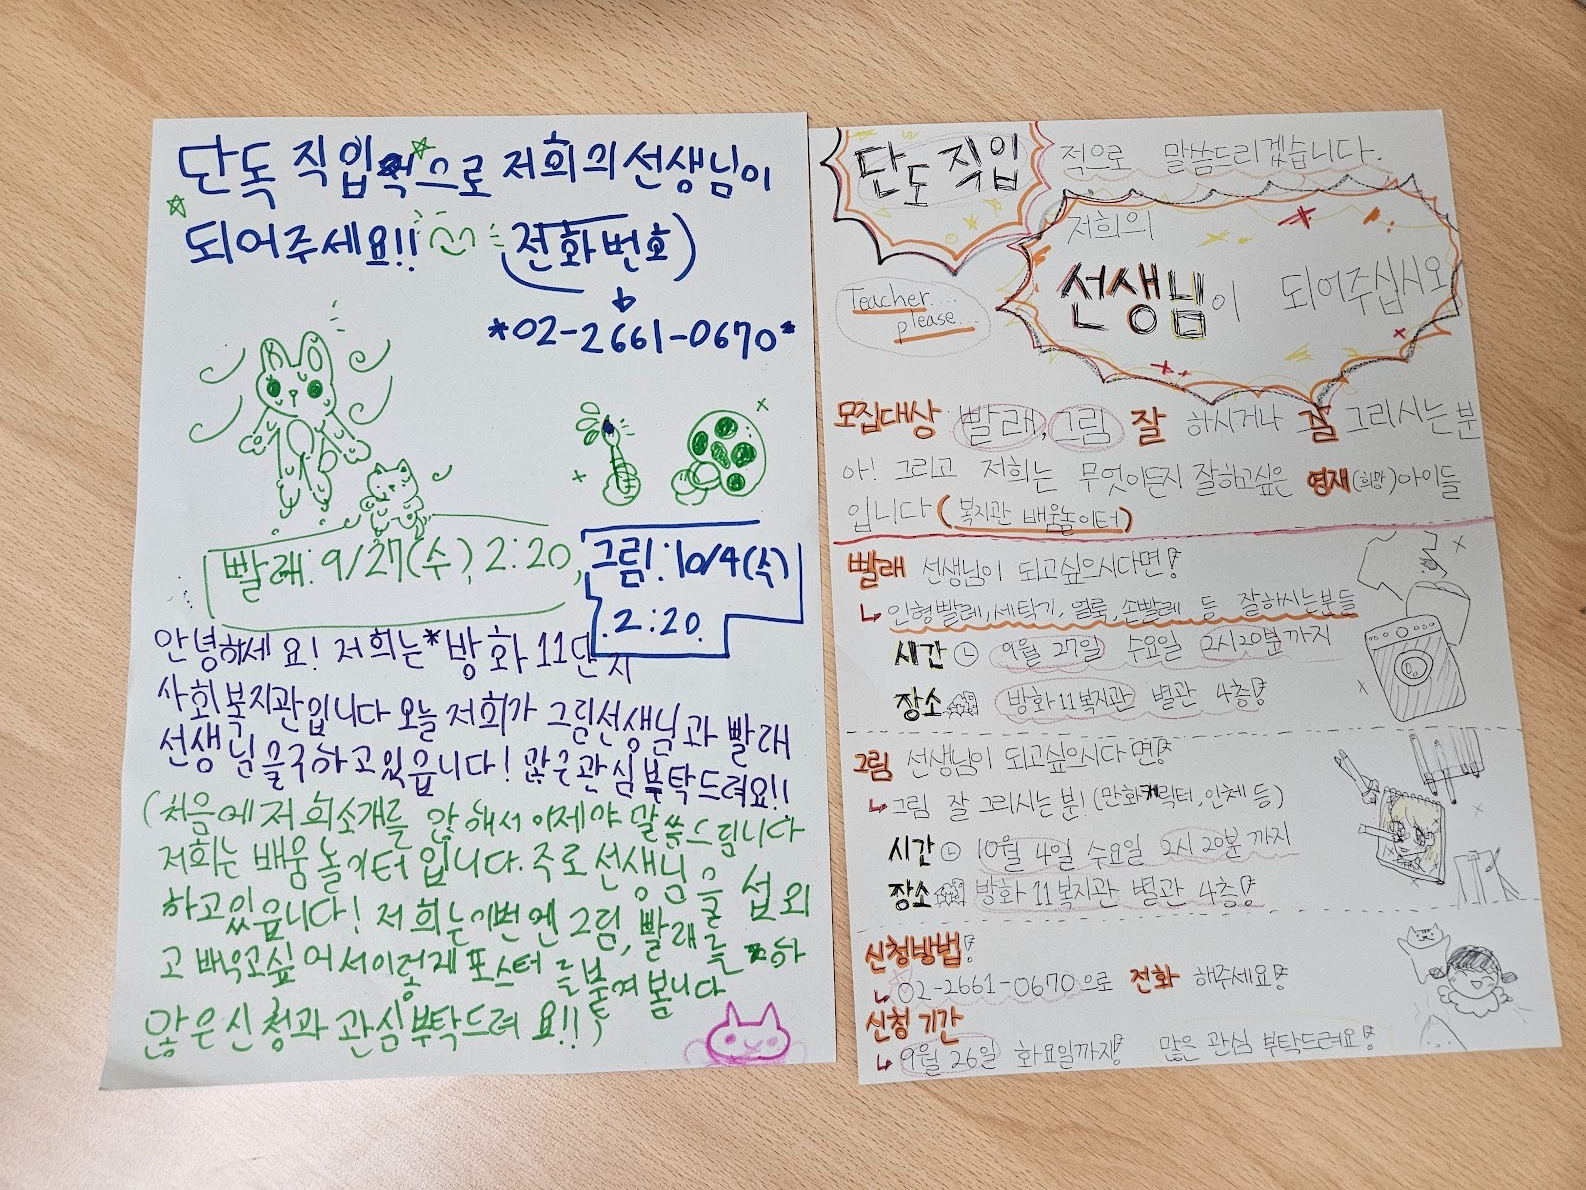 단독 직입적으로 저희의 선생님이
되어주세요!! (전화번호)
*02-2661-0670*
빨래: 9/27(수), 2:20,
그림!: 10/4(수)
2:20.
안녕하세요! 저희는 *방화 11단지
사회복지관입니다 오늘 저희가 그림선생님과 빨래
선생님을구하고있읍니다! 많은관심부탁드려요!!
(처음에저희소개를 않해서 이제야 말씀드립니다
저희는 배움놀이터입니다. 주로 선생님을 섭외
하고있읍니다! 저희는이번엔 그림, 빨래를 하
고 배우고싶어서이렇게포스터를붙여봅니다
많은신청과 관심부탁드려요!!)
단도직입적으로 말씀드리겠습니다.
저희의
선생님이 되어주십시오
Teacher....
please...
모집대상 빨래, 그림 잘 하시거나 잘 그리시는 분
아! 그리고 저희는 무엇이든지 잘하고싶은 영재(희망)아이들
입니다 (복지관 배움놀이터)
빨래 선생님이 되고싶으시다면!
인형빨레, 세탁기, 얼룩, 손빨레 등 잘하시는분들
시간 9월 27일 수요일 2시20분까지
장소 방화11복지관 별관 4층!
그림 선생님이 되고싶으시다면!
그림 잘 그리시는 분! (만화케릭터, 인체 등)
시간 10월 4일 수요일 2시 20분 까지
장소 방화 11복지관 별관 4층!
신청방법!
02-2661-0670으로 전화 해주세요!
신청 기간
9월 26일 화요일까지! 많은 관심 부탁드려요!